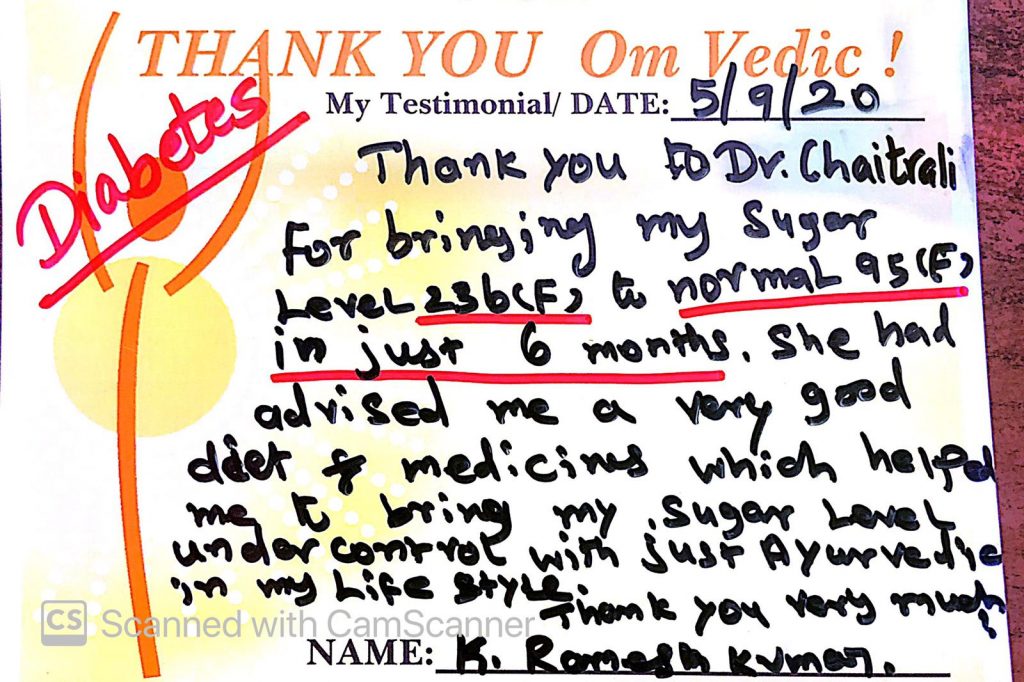 THANK YOU Om Vedic !
My Testimonial/ DATE: 5/9/20
Diabetes
Thank you to Dr. Chaitrali
For bringing my Sugar
Level 236(F) to normal 95(F)
in just 6 months. She had
advised me a very good
diet & medicines which helped
me to bring my sugar level
under control with just Ayurvedic
in my Life Style.
Thank you very much
CS Scanned with CamScanner
NAME: K. Ramesh Kumar.